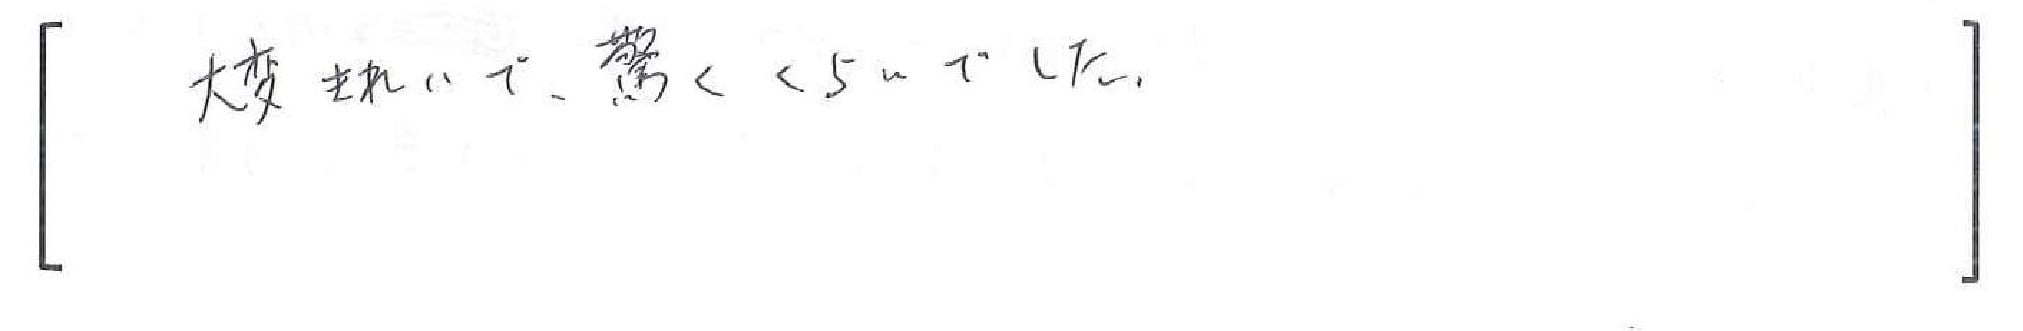 大変きれいで、驚くくらいでした。